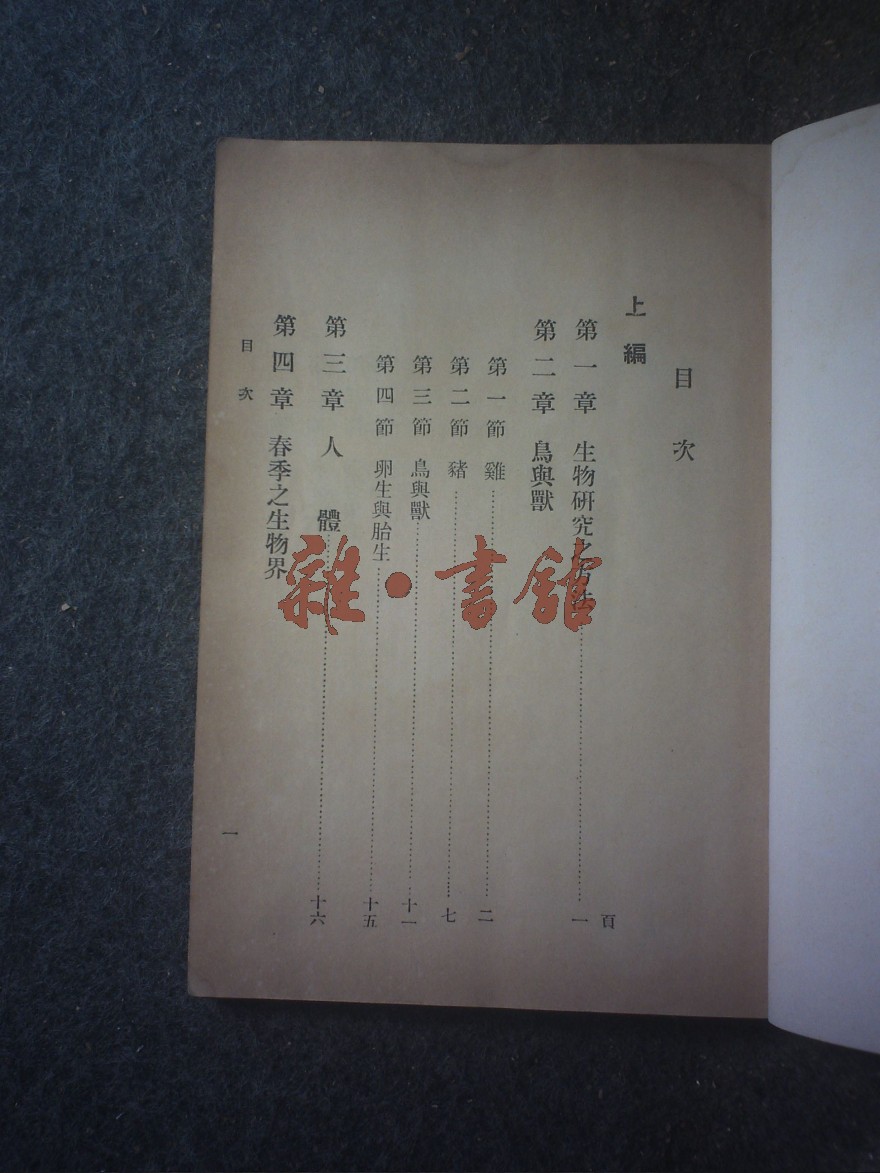 目次
上編
百
第一章 生物研究之方法………一
第二章 鳥與獸
第一節 雞………二
第二節 豬………七
第三節 鳥與獸………十一
第四節 卵生與胎生………十五
第三章 人體………十六
第四章 春季之生物界
目次
一
雜·書館